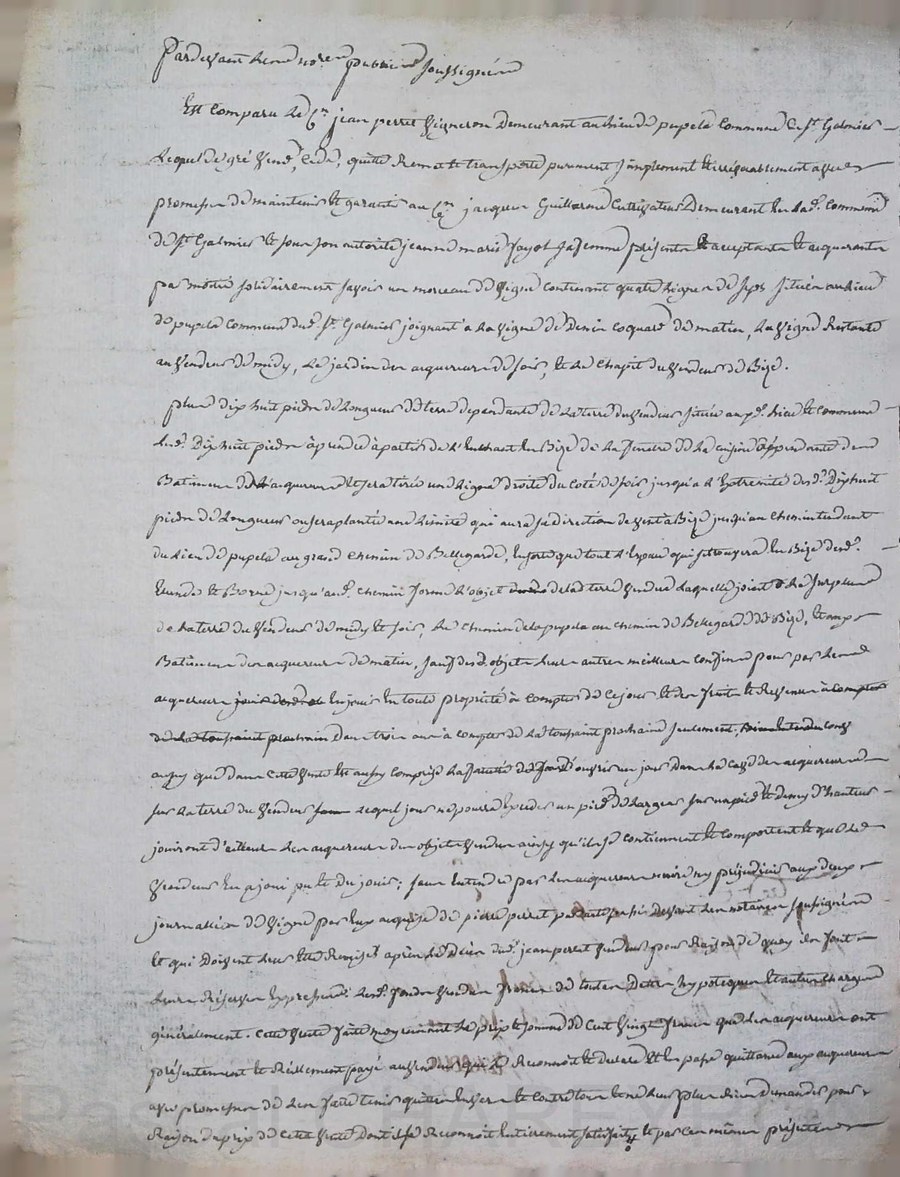 Pardevant les nores publics soussignés
Est comparu le Cn jean perret vigneron demeurant au lieu de pupela commune de St Galmier
Lequel de gré vend, cede, quitte remet et transporte purement simplement et irrévocablement avec
promesse de maintenir et garantir au Cn jacques Guillarme cultivateur demeurant en lad. commune
de St Galmier et sous son autorité jeanne marie fayol sa femme présente et acceptante et acquerants
par moitié solidairement savoir un morceau de vigne contenant quatre lignes de seps située au lieu
de pupela commune dud. St Galmier joignant à la vigne de Denis Coquard de matin, la vigne restante
au vendeur de midy, le jardin des acquereurs de soir, et le chapit du vendeur de Bize.
plus dix huit pieds de longueur de terre dependante de la terre du vendeur située au pd. lieu et commune
lesd. Dix huit pieds à prendre à partir de l' en Bize de la fenetre de la cuisine dependante des
Batiments de l'acquereur et sera tirée une ligne droite du coté de soir jusqu'a l'extremité desd. Dix huit
pieds de longueur ou sera plantée une limite qui aura sa direction de vent à Bize jusqu'au chemin tendant
du lieu de pupela au grand chemin de Bellegarde, en sorte que tout l'espace qui se trouvera en Bize desd.
Limites et Borne jusqu'aud. chemin forme l'objet de lad terre vendue laquelle joint à la surplus
de la terre du vendeur de midy et soir, le chemin de la pupela au chemin de Bellegarde de Bize, et aux
Batiments des acquereurs de matin, sauf desd. objets leurs autres meilleurs confins pour par les
acquereurs en jouir en toute propriété à compter de ce jour et des fruits et revenus à compter
de la toussaint prochain dans trois ans à compter de la toussaint prochaine seulement,
aussy que dans cette vente est aussy comprise la faculté d'ouvrir un jour dans la cave des acquereurs
sur la terre du vendeur lequel jour ne pourra exceder un pied de largeur sur un pied et demy d'hauteur
jouiront d'ailleurs les acquereurs des objets vendus ainsy qu'ils se contiennent et comportent et que le
vendeur en a joui pu et du jouir; sans entendre par les acquereurs nuire ny prejudicier aux deux
journalées de vigne par eux acquise de pierre perret devant les notaires soussignés
et qui doivent leur etre remises après le décès dud. jean perret vendeur pour raison de quoy ils font
leurs réserves expresses. lesd. fonds vendus francs de toutes dettes hypoteques et autres charges
généralement. cette vente faite moyennant le prix et somme de cent vingt francs que les acquereurs ont
présentement et réellement payé au vendeur qui le reconnoit et declare et en passe quittance aux acquereurs
avec promesse de les faire tenir quittes envers et contre tous et ne leur plus rien demander pour
Raison du prix de cette vente dont il se reconnoit entierement satisfait, et par ces mêmes présentes